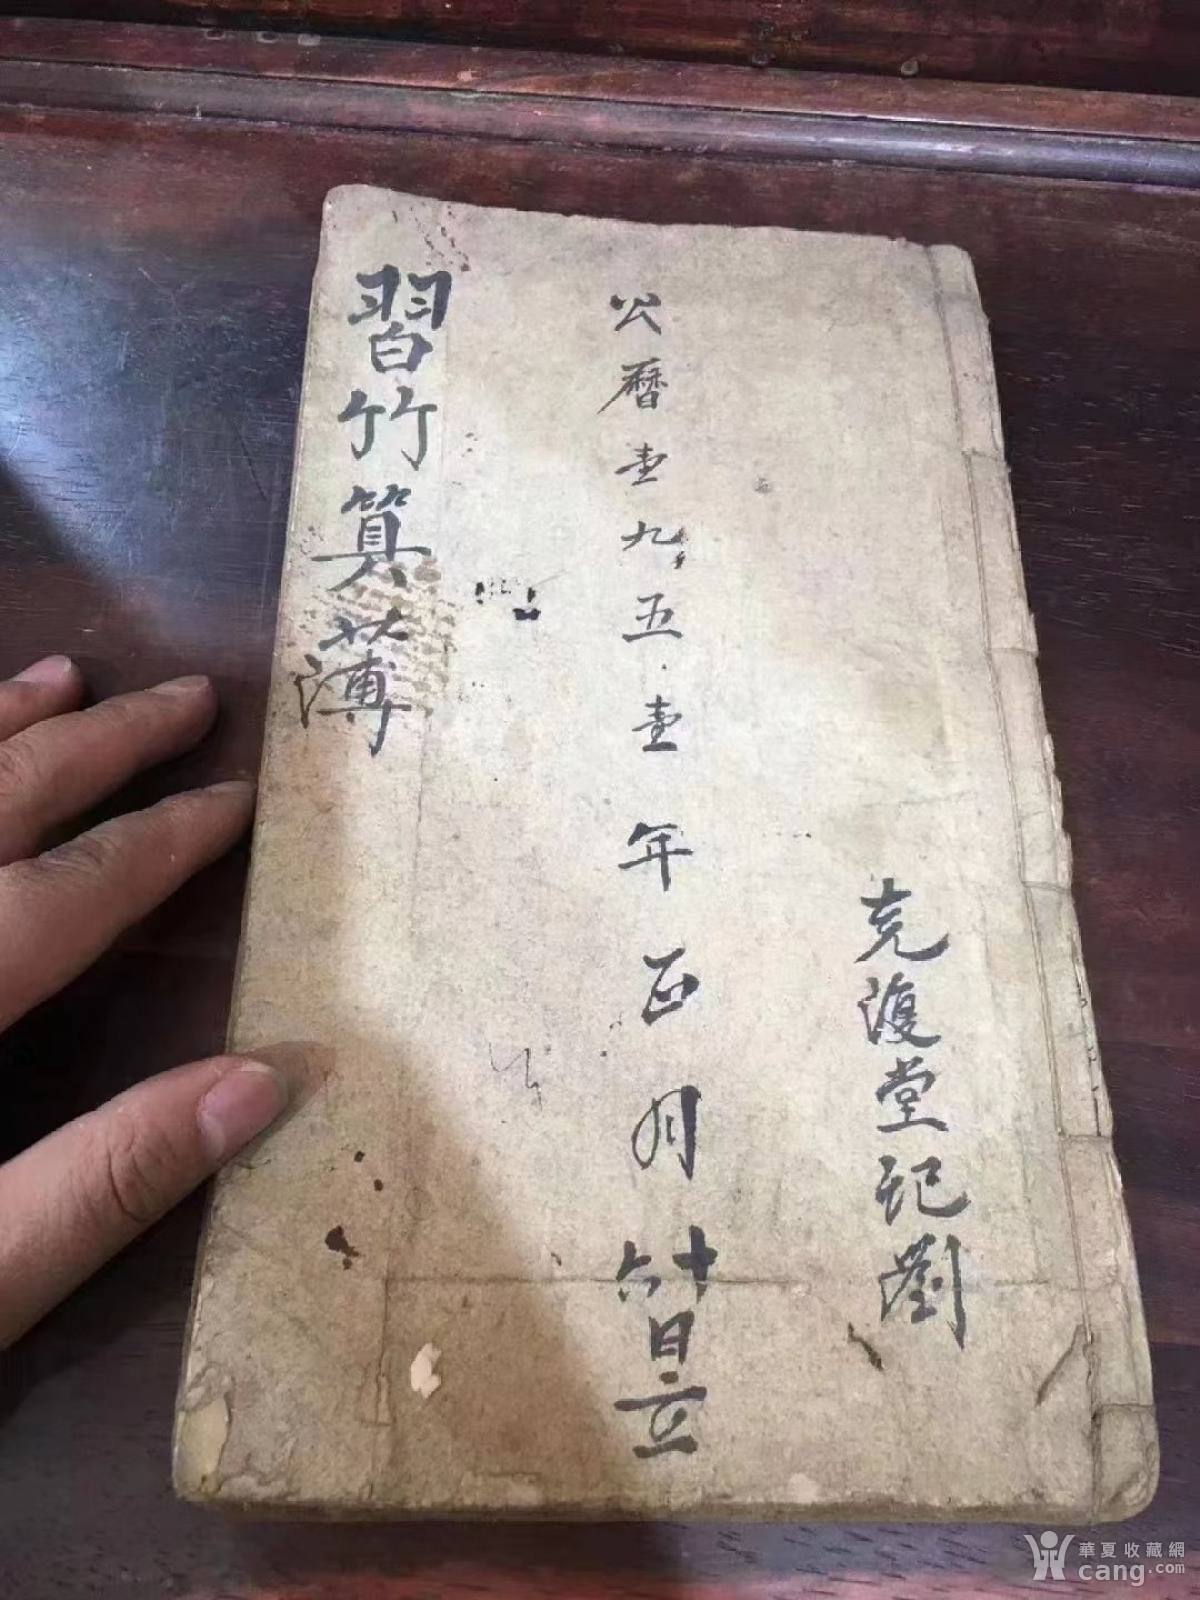 克復堂记劉
公曆壹九五壹年正月十六日立
習竹算薄
華夏收藏網
cang.com